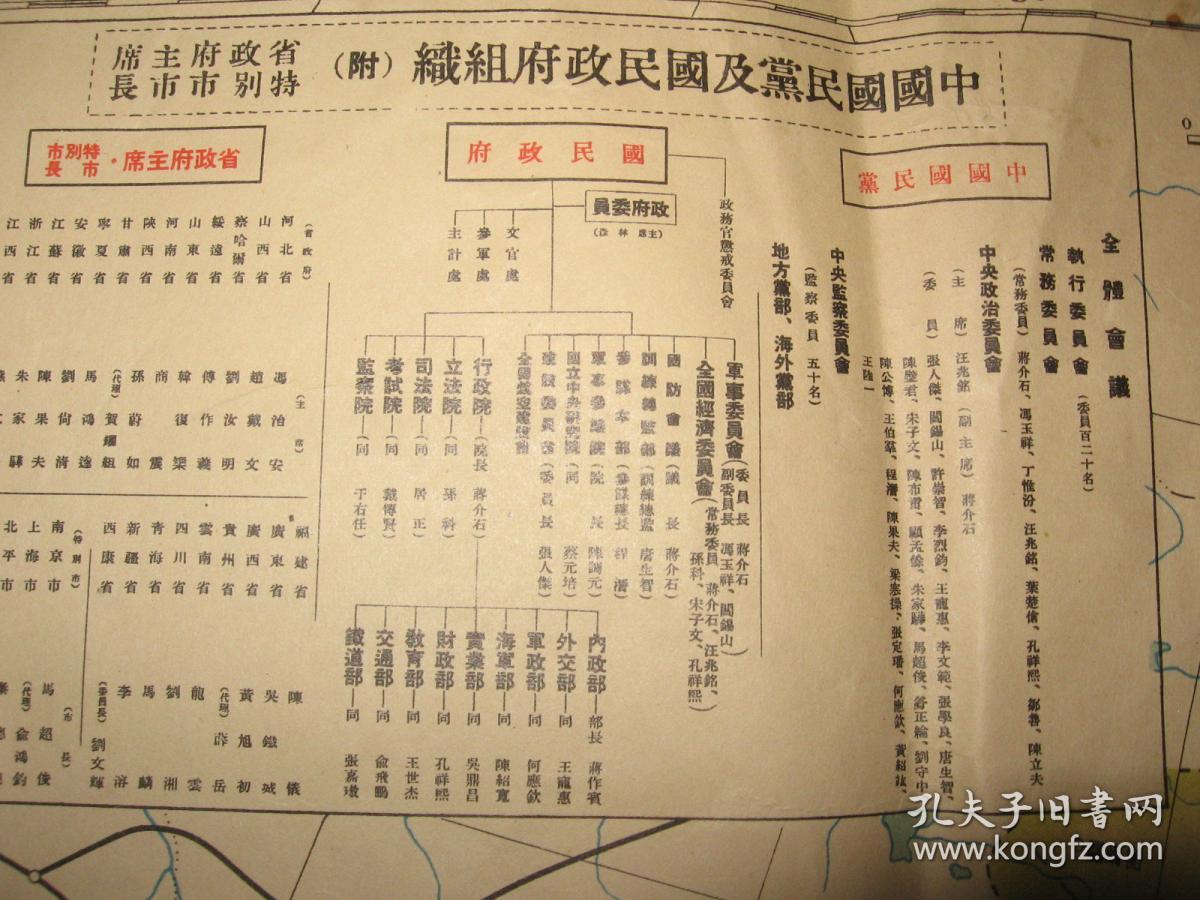 中國國民黨及國民政府組織 (附) 省政府主席 特別市市長
中國國民黨
全體會議
執行委員會 (委員百二十名)
常務委員會
(常務委員) 蔣介石、馮玉祥、丁惟汾、汪兆銘、葉楚傖、孔祥熙、鄒魯、陳立夫
中央政治委員會
(主席) 汪兆銘 (副主席) 蔣介石
(委員) 張人傑、閻錫山、許崇智、李烈鈞、王寵惠、李文範、張學良、唐生智、
陳璧君、宋子文、陳布雷、顧孟餘、朱家驊、馬超俊、劉守中
陳公博、王伯羣、程潛、陳果夫、梁寒操、張定璠、何應欽、黃紹竑、
王陸一
中央監察委員會
(監察委員 五十名)
地方黨部、海外黨部
國民政府
政務官懲戒委員會
政府委員
(主席 林森)
文官處
參軍處
主計處
軍事委員會 (委員長 蔣介石
副委員長 馮玉祥、閻錫山)
全國經濟委員會 (常務委員 蔣介石、汪兆銘、
孫科、宋子文、孔祥熙)
國防會議 (議長 蔣介石)
訓練總監部 (訓練總監 唐生智)
參謀本部 (參謀總長 程潛)
軍事參議院 (院長 陳調元)
國立中央研究院 (同 蔡元培)
建設委員會 (委員長 張人傑)
行政院—(院長 蔣介石)
立法院—(同 孫科)
司法院—(同 居正)
考試院—(同 戴傳賢)
監察院—(同 于右任)
內政部—部長 蔣作賓
外交部—同 王寵惠
軍政部—同 何應欽
海軍部—同 陳紹寬
實業部—同 吳鼎昌
財政部—同 孔祥熙
教育部—同 王世杰
交通部—同 俞飛鵬
鐵道部—同 張嘉璈
省政府主席・特別市市長
(省政府) (主席)
河北省 馮治安
山西省 趙戴文
察哈爾省 劉汝明
綏遠省 傅作義
山東省 韓復榘
河南省 商震
陝西省 孫蔚如
甘肅省 (代理) 賀耀組
寧夏省 馬鴻逵
安徽省 劉尚清
江蘇省 陳果夫
浙江省 朱家驊
江西省
福建省 陳儀
廣東省 吳鐵城
廣西省 黃旭初
貴州省 (代理) 薛岳
雲南省 龍雲
四川省 劉湘
青海省 馬麟
新疆省 李溶
西康省 (委員長) 劉文輝
(特別市) (市長)
南京市 馬超俊
上海市 (代理) 俞鴻鈞
北平市
孔夫子旧書网
www.kongfz.com